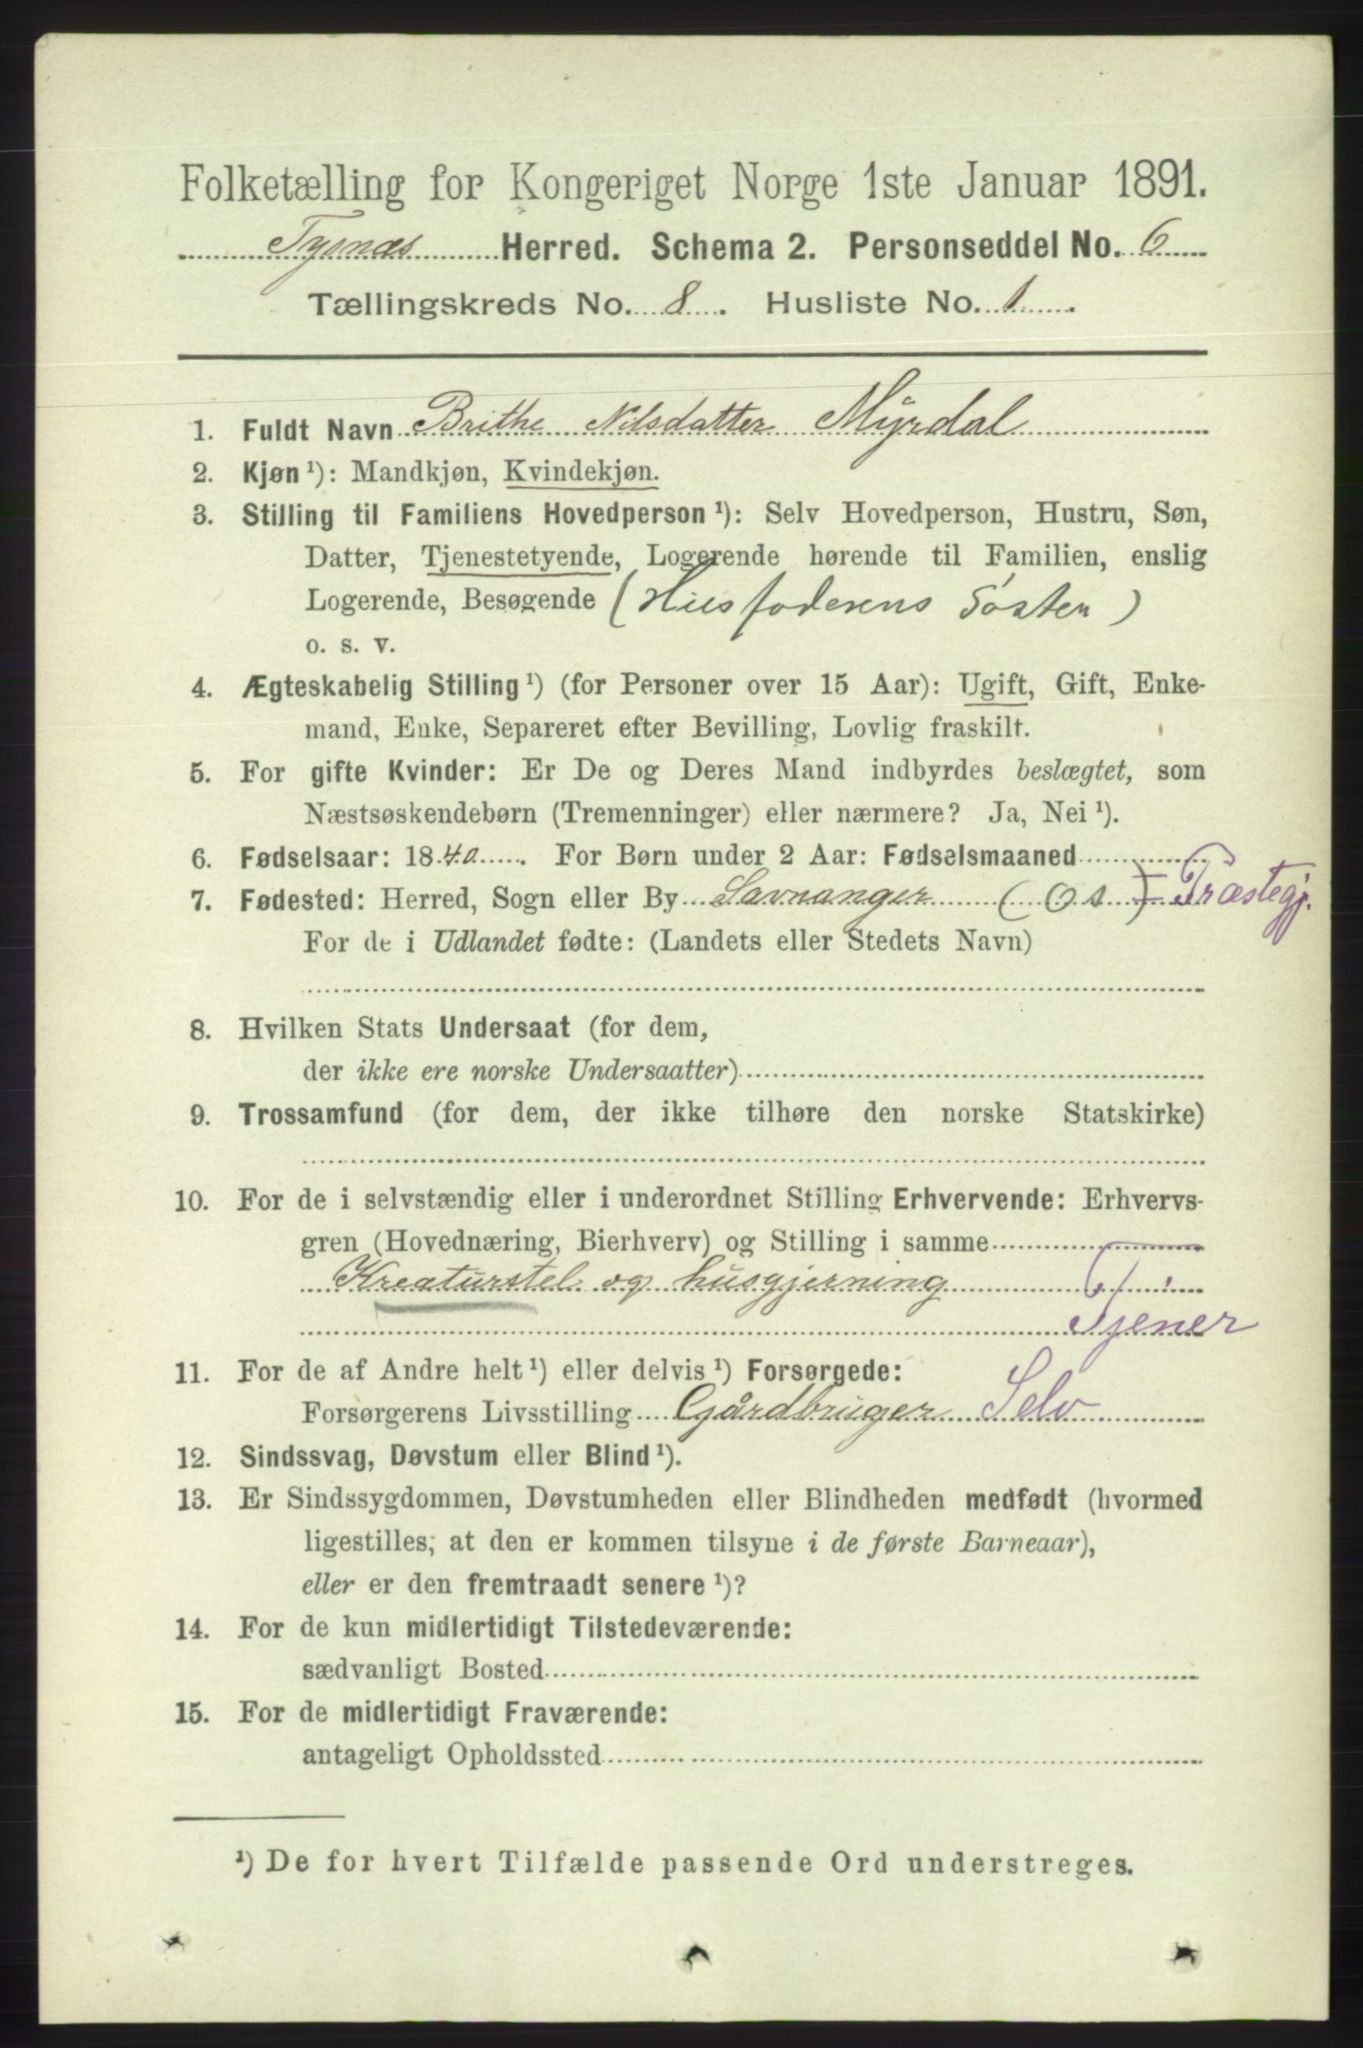 Folketælling for Kongeriget Norge 1ste Januar 1891.
Tysnæs Herred. Schema 2. Personseddel No. 6
Tællingskreds No. 8. Husliste No. 1.
1. Fuldt Navn Brithe Nilsdatter Myrdal
2. Kjøn ¹): Mandkjøn, Kvindekjøn.
3. Stilling til Familiens Hovedperson ¹): Selv Hovedperson, Hustru, Søn,
Datter, Tjenestetyende, Logerende hørende til Familien, enslig
Logerende, Besøgende (Husfaderens Søster)
o. s. v.
4. Ægteskabelig Stilling ¹) (for Personer over 15 Aar): Ugift, Gift, Enke-
mand, Enke, Separeret efter Bevilling, Lovlig fraskilt.
5. For gifte Kvinder: Er De og Deres Mand indbyrdes beslægtet, som
Næstsøskendebørn (Tremenninger) eller nærmere? Ja, Nei ¹).
6. Fødselsaar: 1840. For Børn under 2 Aar: Fødselsmaaned
7. Fødested: Herred, Sogn eller By Savnanger (Os) Præstegj.
For de i Udlandet fødte: (Landets eller Stedets Navn)
8. Hvilken Stats Undersaat (for dem,
der ikke ere norske Undersaatter)
9. Trossamfund (for dem, der ikke tilhøre den norske Statskirke)
10. For de i selvstændig eller i underordnet Stilling Erhvervende: Erhvervs-
gren (Hovednæring, Bierhverv) og Stilling i samme
Kreaturstel og husgjerning
Tjener
11. For de af Andre helt ¹) eller delvis ¹) Forsørgede:
Forsørgerens Livsstilling Gårdbruger Selv
12. Sindssvag, Døvstum eller Blind ¹).
13. Er Sindssygdommen, Døvstumheden eller Blindheden medfødt (hvormed
ligestilles, at den er kommen tilsyne i de første Barneaar),
eller er den fremtraadt senere ¹)?
14. For de kun midlertidigt Tilstedeværende:
sædvanligt Bosted
15. For de midlertidigt Fraværende:
antageligt Opholdssted
¹) De for hvert Tilfælde passende Ord understreges.